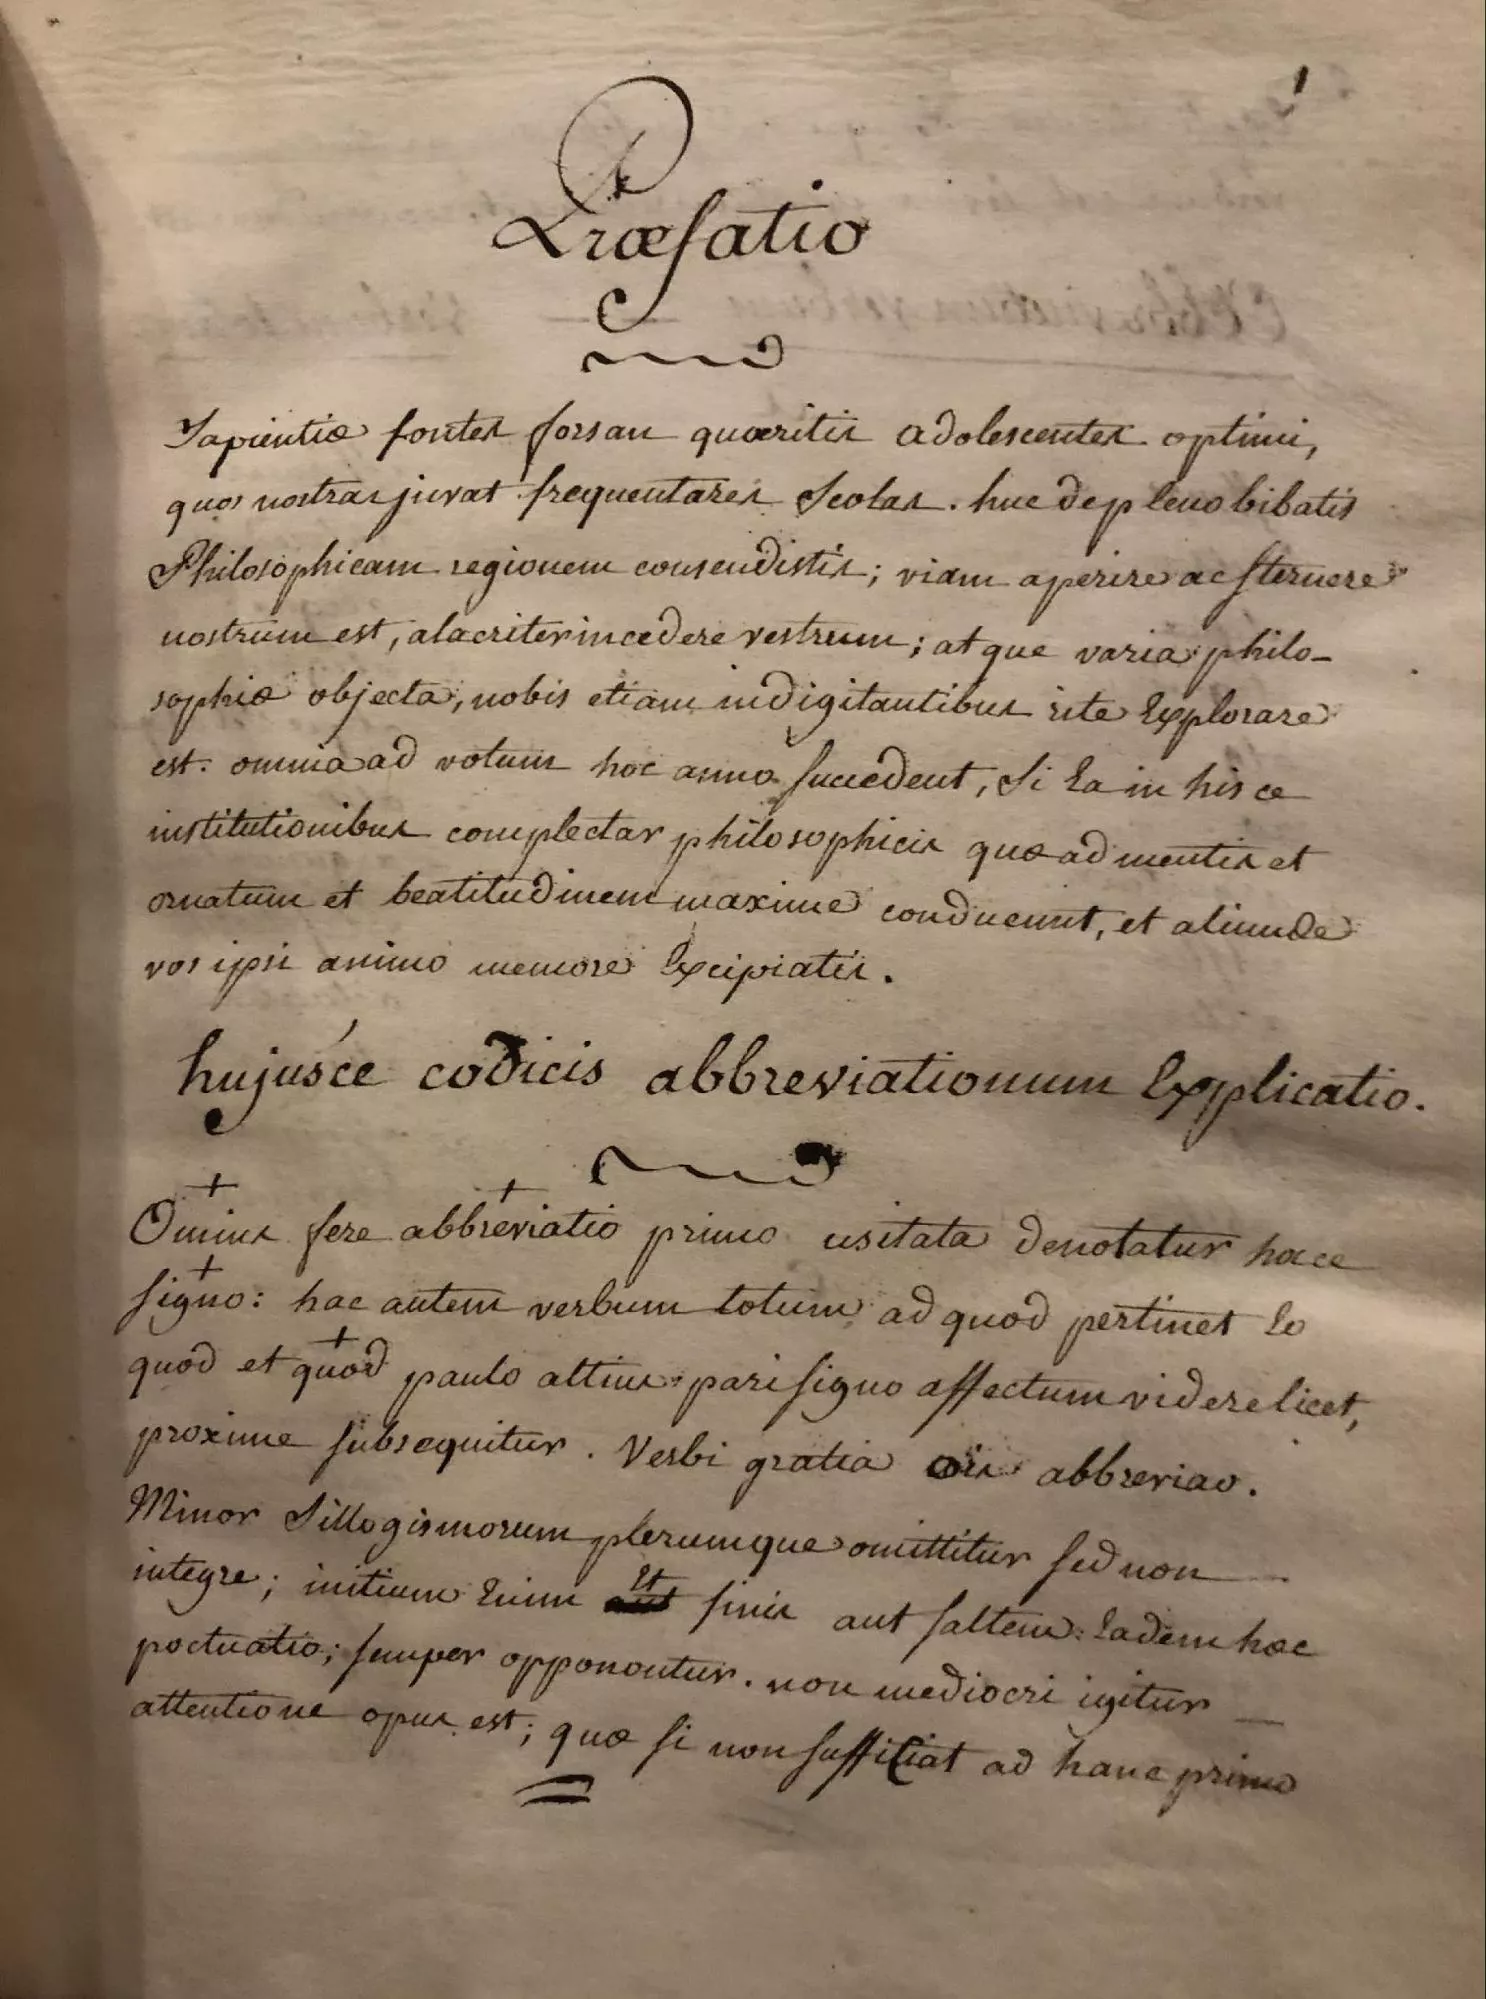 1
Præfatio
Sapientiæ fontes forsan quæritis adolescentes optimi,
quos nostras juvat frequentares Scolas. huc de pleno bibatis
Philosophicam regionem consendistis; viam aperire ac sternere
nostrum est, alacriter incedere vestrum; atque varia philo-
sophiæ objecta, nobis etiam indigitantibus rite Explorare
est. omnia ad votum hoc anno succedent, Si Ea in hisce
institutionibus complectar philosophicis quæ ad mentis et
ornatum et beatitudinem maxime conducunt, et aliunde
vos ipsi animo memore Excipiatis.
hujusce codicis abbreviationum Explicatio.
Omnis fere abbreviatio primo usitata denotatur hocce
signo: hac autem verbum totum ad quod pertinet Eo
quod et quod paulo altius pari signo affectum videre licet,
proxime subsequitur. Verbi gratia ois abbreviao.
Minor Sillogismorum plerumque omittitur sed non
integre; initium Enim Et finis aut saltem Eadem hæc
poctuatio; semper opponontur. non mediocri igitur
attentione opus est; quæ si non sufficiat ad hanc primo